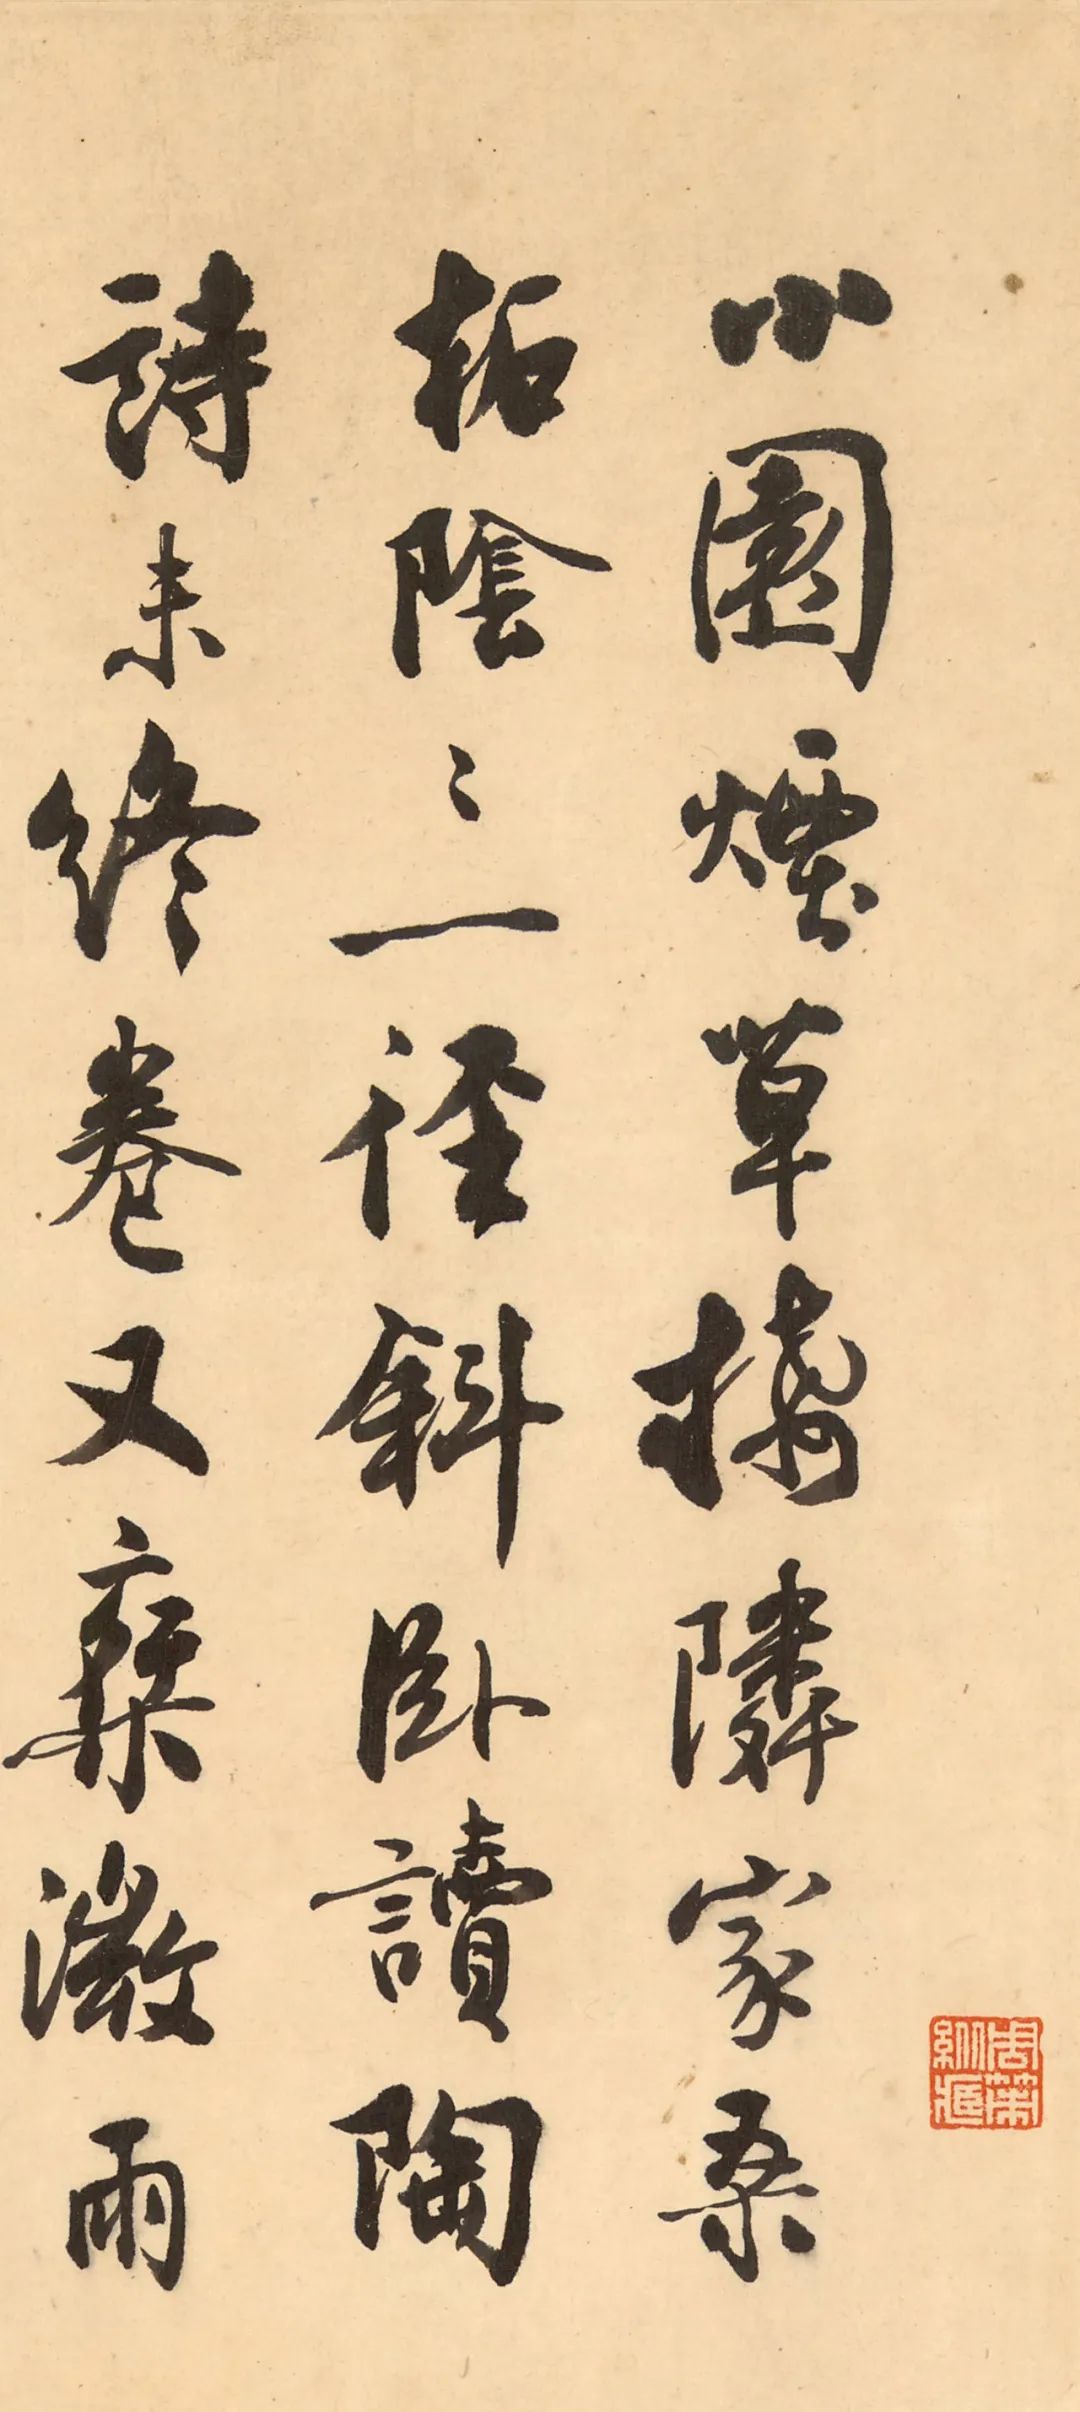 小園煙草隣家桑
柘陰〻一徑斜臥讀陶
詩未終卷又乘溦雨